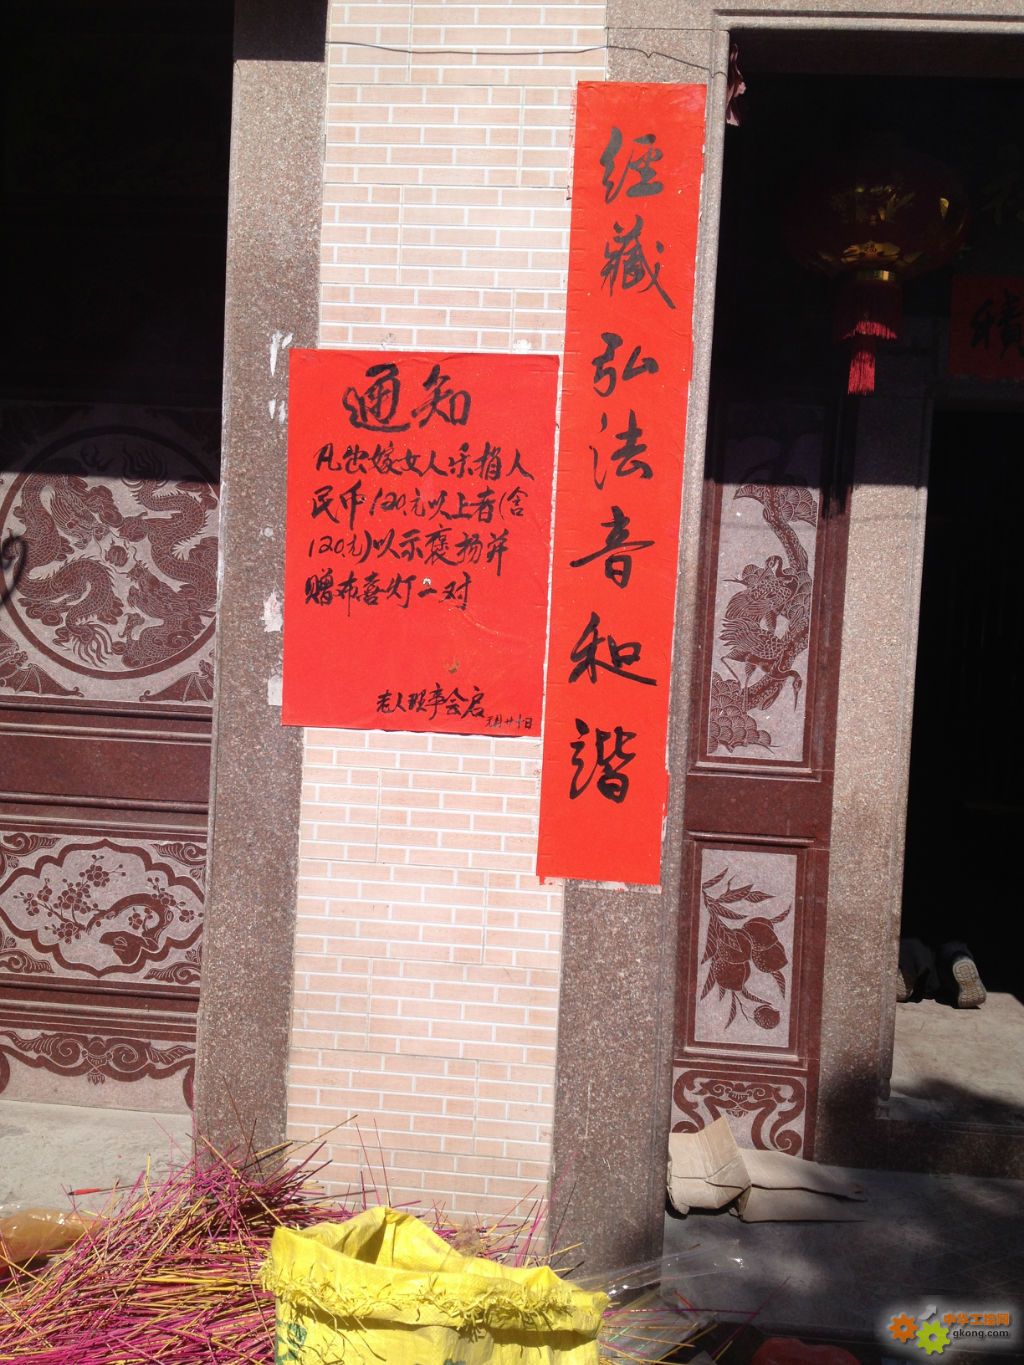 經藏弘法音和諧
通知
凡出嫁女人乐捐人
民币120元以上者(含
120元)以示褒扬并
赠布喜灯一对
老人理事会启
元月廿十日
積
中华工控网
gkong.com